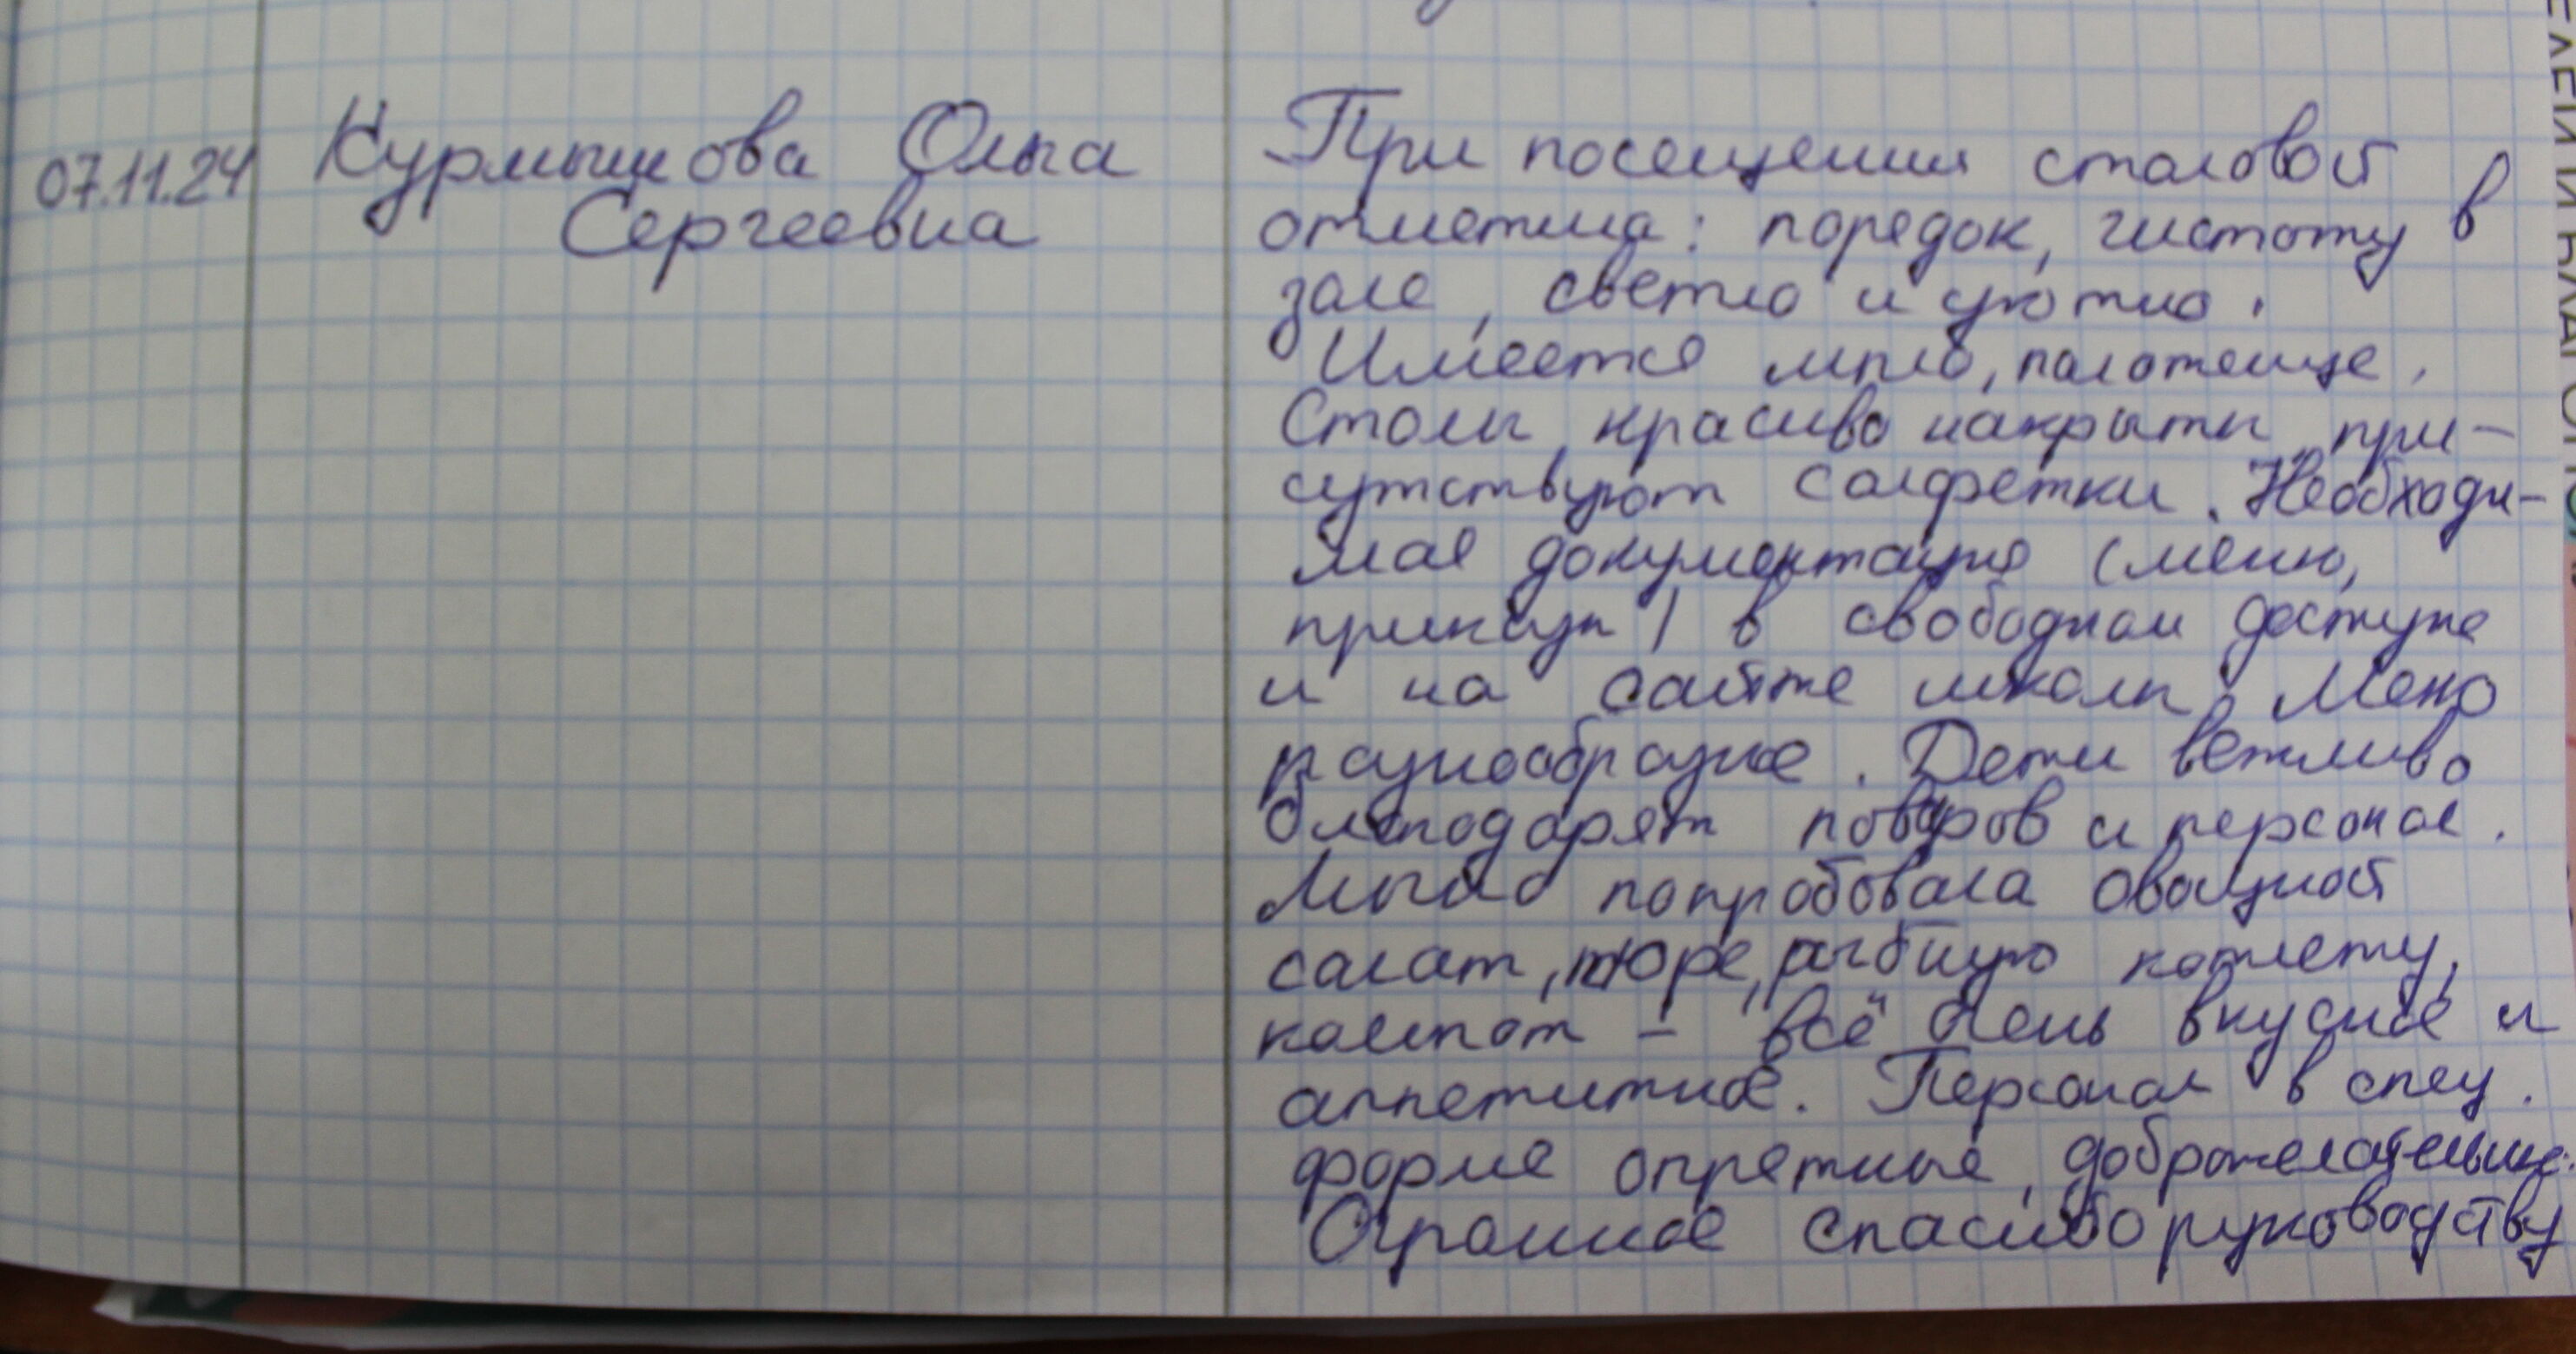 07.11.24 Курмышова Ольга
Сергеевна
При посещении столовой
отметила: поредок, чистоту в
зале, светло и уютно.
Имеется мыло, полотенце.
Столы красиво накрыты, при-
сутствуют салфетки. Необходи-
мая документация (меню,
приказы) в свободном доступе
и на сайте школы. Меню
разнообразное. Дети вежливо
благодарят поваров и персонал.
Мною попробовала овощной
салат, пюре, рыбную котлету,
компот – всё очень вкусное и
аппетитное. Персонал в спец.
форме опретные, доброжелательные.
Огромное спасибо руководству